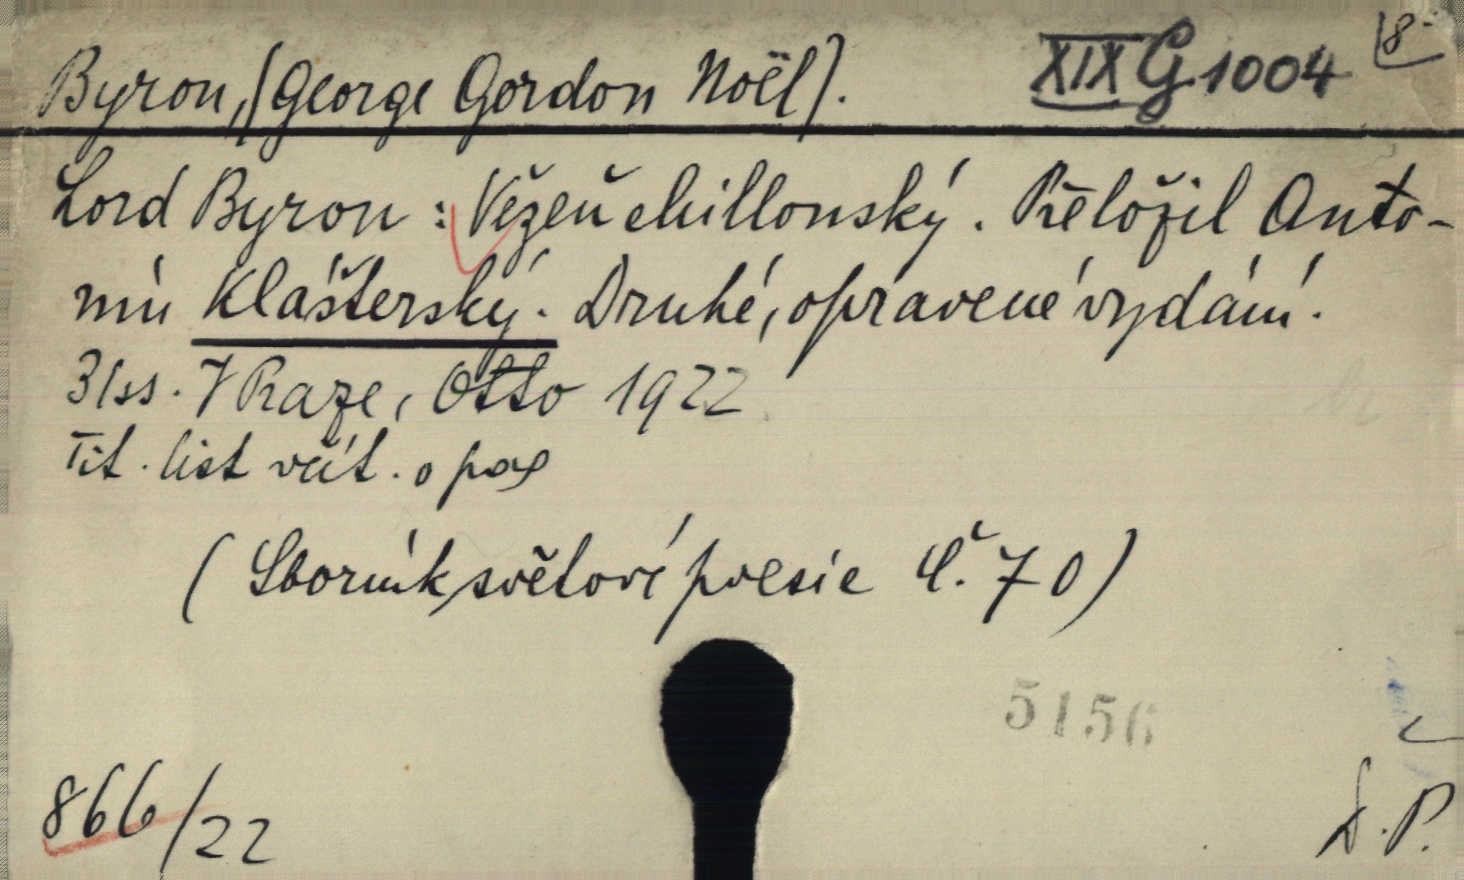 Byron, (George Gordon Noël). XIX G 1004 8-
Lord Byron: Vězeň chillonský. Přeložil Anto-
nín Klášterský. Druhé, opravené vydání.
31 ss. V Praze, Otto 1922
Tit. list
(Sborník světové poesie č. 70)
5156
866/22
D. P.